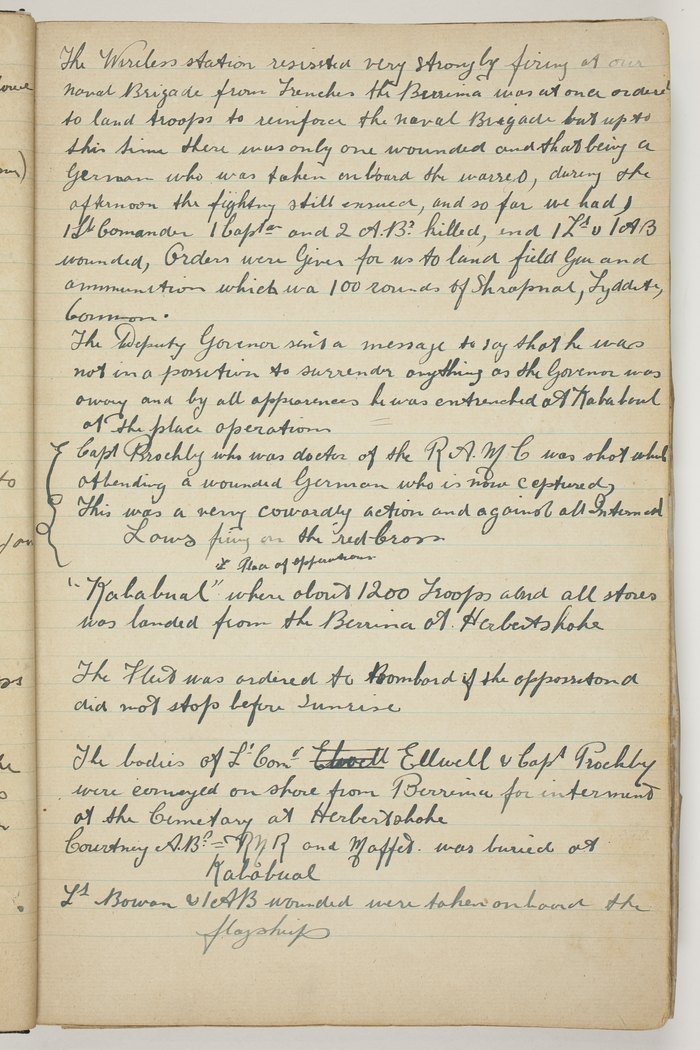 The Wireless station resisted very strongly firing at our
naval Brigade from Trenches the Berrima was at once ordered
to land troops to reinforce the naval Brigade but up to
this time there was only one wounded and that being a
German who was taken on board the warreo, during the
afternoon the fighting still ensued, and so far we had,
1 Lt Comander 1 Captan and 2 A.Bs killed, and 1 Lt & 1 AB
wounded, Orders were Given for us to land field Gun and
ammunition which wa 100 rounds of Shrapnal, Lyddite,
Common.
The Deputy Govenor sent a message to say that he was
not in a possition to surrender anything as the Govenor was
away and by all appearences he was entrenched at Kababaul
at the place operations
Capt Prochby who was doctor of the R A. M C was shot while
attending a wounded German who is now captured,
This was a very cowardly action and against all Internal
Laws firing on the red Cross
Place of opperations
"Kababual" where about 1200 Troops and all stores
was landed from the Berrima at Herbertshohe
The Fleet was ordered to Bombard if the oppossitond
did not stop before Sunrise
The bodies of Lt Comr Elwell Ellwell & Capt Prochby
were convoyed on shore from Berrima for interment
at the Cemetary at Herbertshohe
Courtney A.Bs = RNR and Moffet. was buried at
Kababual
Lt Bowan & 1 AB wounded were taken onboard the
flagship